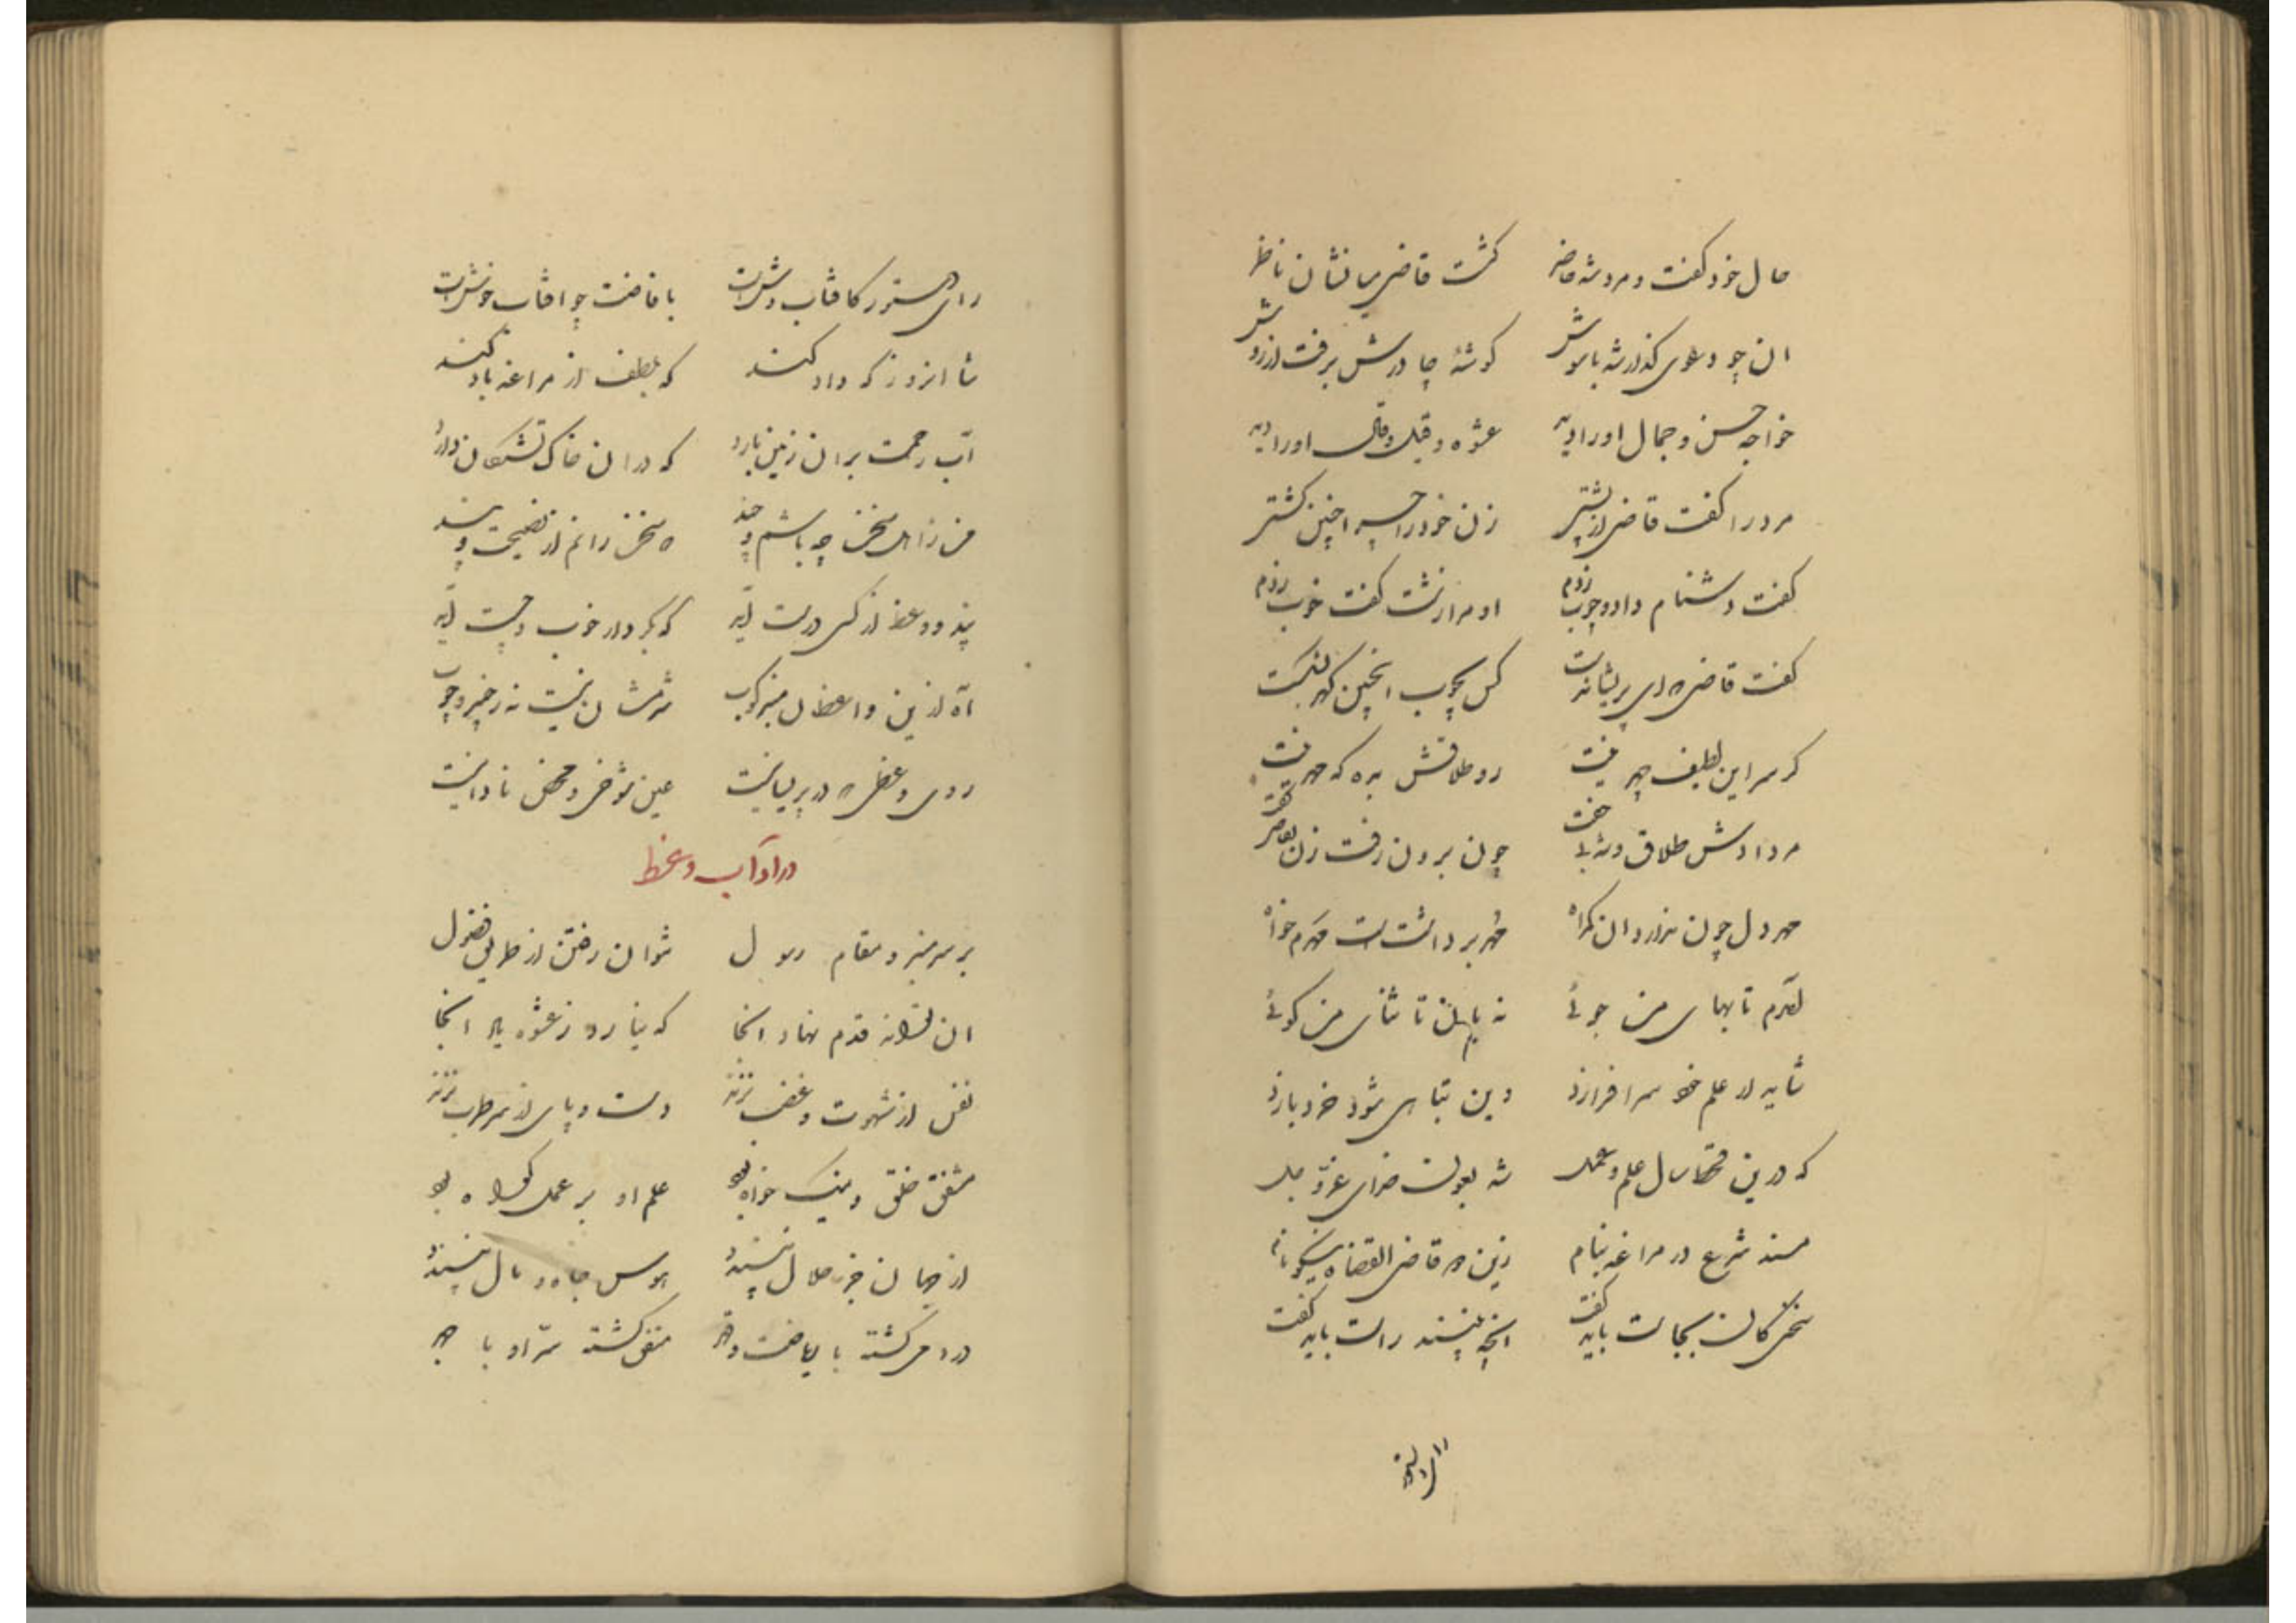 حال خود گفت و مرد شد حاضر گشت قاضی بدان نشان ناظر
ان چو دعوی گذار شد با شوش گوشهٔ چادرش برفت از دوش
خواجه حسن و جمال او را دید عشوه و قیل و قال او را دید
مرد را گفت قاضی از پشتی زن خود را چرا چنین کشتی
گفت دشنام داد و چوب زدم او مرا زشت گفت خوب زدم
گفت قاضی که ای پریشان دست کس بچوب اینچنین گهر نشکست
گر سر این لطیف چهرت نیست رو طلاقش بده که مهرت نیست
مرد دادش طلاق و شد بی جفت چون برون رفت زن بقاضی گفت
مهر دل چون ندارد ان گمراه مهر بر داشتست مهرم خواه
لقدم تا بهای من جوئی نه بابان تا ثنای من گوئی
شاید ار علم خود سرافرازد دین تباهی شود خرد بازد
که درین قحط سال علم و عمل شد بعون خدای عز و جل
مسند شرع در مراغه بنام زین مه قاضی القضاة نیکو نام
سخن کان بجاست باید گفت انچه پیشند راست باید گفت
رای دستور کافتاب وش است با قاضت چو افتاب خوش است
شاد انروز که داد کند که بلطف از مراغه یاد کند
آب رحمت بران زمین بارد که دران خاک تشنگان دارد
من ز اهل سخن چه باشم و چند که سخن رانم از نصیحت و پند
پند و وعظ از کسی درست آید که بکردار خوب و چست آید
آه ازین واعظان منبر کوب شرمشان نیست نه ز خیر و چوب
روی وعظی که در پریسانیست عین شوخی و محض نادانیست
در اداب وعظ
بر سر منبر و مقام رسول نتوان رفتن از طریق فضول
ان تواند قدم نهاد انجا که نیارد ز عشوه یاد انجا
نفس از شهوت و غضب نزند دست و پای از سر طرب نزند
مشفق خلق و نیک خواه بود علم او بر عمل گواه بود
از جهان جز حلال نپسندد هوس جاه و مال نپسندد
در دمی گشته با ریاضت و قهر متفق گشته سرّ او با جهر